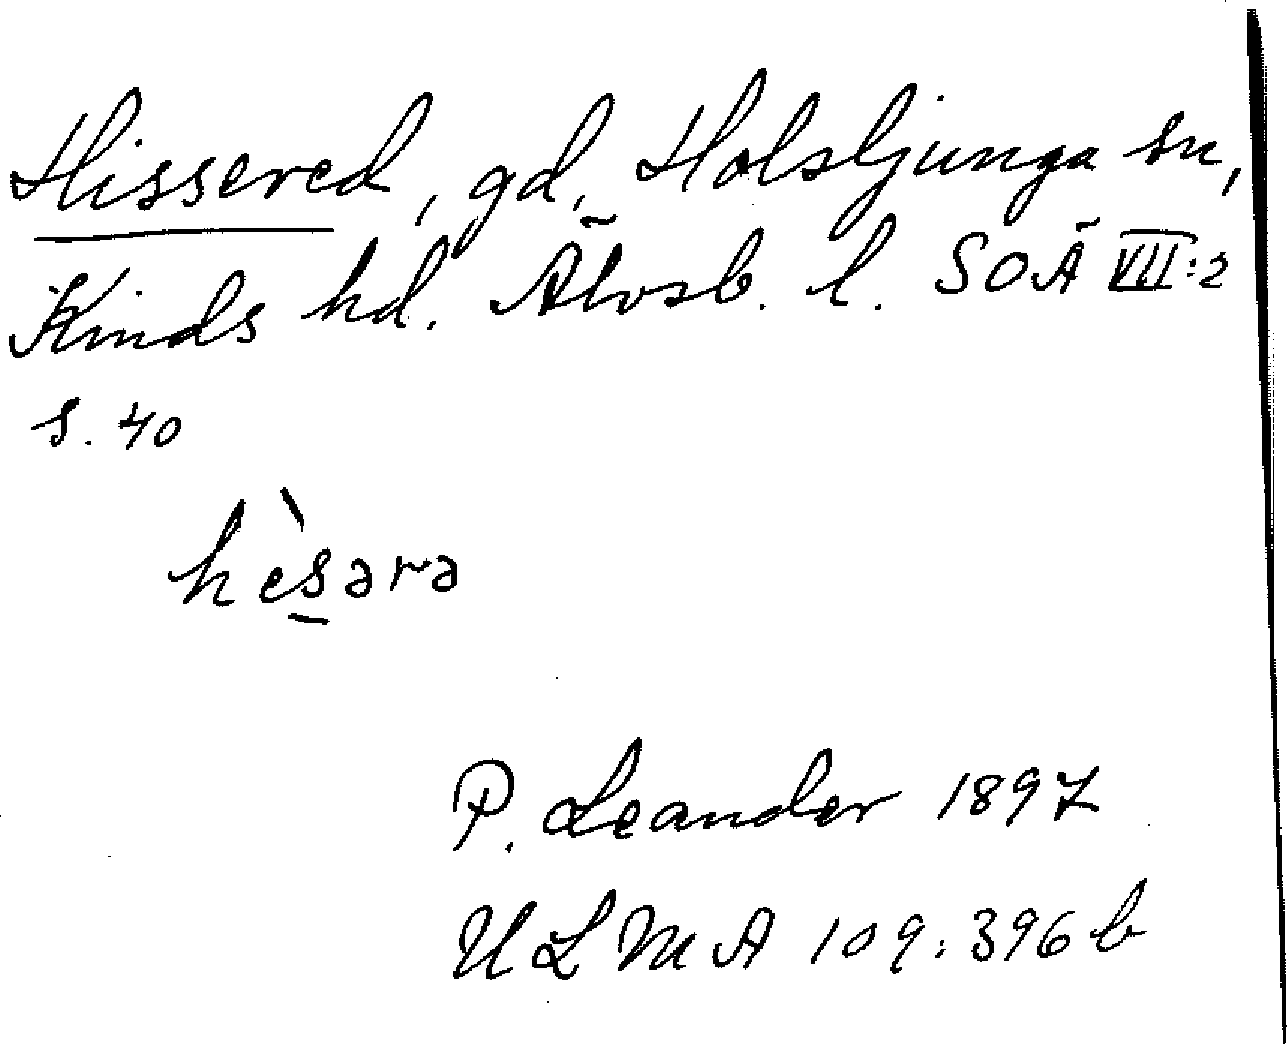 Hissered, gd, Holsljunga sn,
Kinds hd. Älvsb. l. SOÄ VII:2
s. 40
hès̲ərə
P. Leander 1897
ULMA 109:396 b